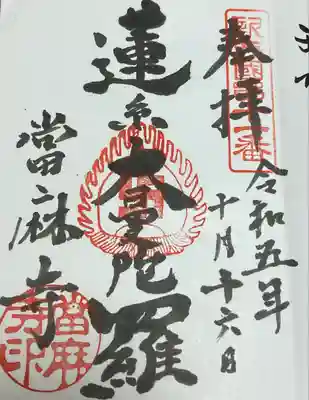 奉拝
令和五年
十月十六日
蓮糸大曼陀羅
當麻寺
當麻寺印